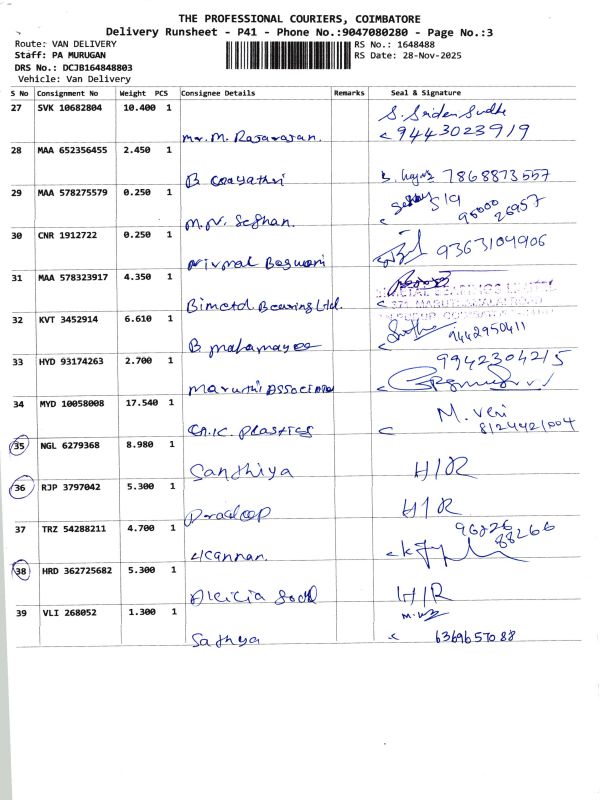 THE PROFESSIONAL COURIERS, COIMBATORE
Delivery Runsheet - P41 - Phone No.:9047080280 - Page No.:3
Route: VAN DELIVERY RS No.: 1648488
Staff: PA MURUGAN RS Date: 28-Nov-2025
DRS No.: DCJB164848803
Vehicle: Van Delivery
S No Consignment No Weight PCS Consignee Details Remarks Seal & Signature
27 SVK 10682804 10.400 1
Mr. M. Rajararan. 9443023919
28 MAA 652356455 2.450 1
B Gayathri 7868873557
29 MAA 578275579 0.250 1
M.N. Seshan. 95000 26957
30 CNR 1912722 0.250 1
Nirmal 9363104906
31 MAA 578323917 4.350 1
Bimetal Bearing Ltd.
32 KVT 3452914 6.610 1
B mahamayee 9442950411
33 HYD 93174263 2.700 1
Maruthi Associates 9942304215
34 MYD 10058008 17.540 1
plastics M. Veni
8124421004
35 NGL 6279368 8.980 1
Santhiya H/R
36 RJP 3797042 5.300 1
Pradeep H/R
37 TRZ 54288211 4.700 1
Kannan. 96226 88266
38 HRD 362725682 5.300 1
H/R
39 VLI 268052 1.300 1
Sathya 6369657088